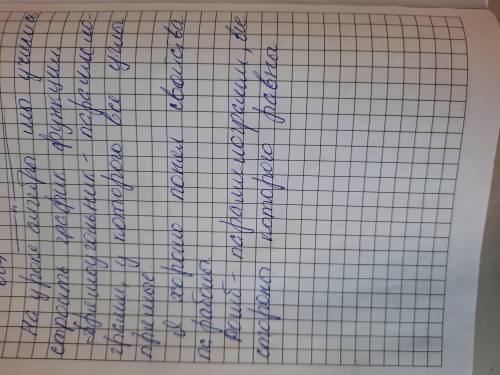 На уроке алгебры мы учимся
строить график функции.
Прямоугольник - параллело-
грамм, у которого все углы
прямые.
Я хорошо понял свойства
параболы.
Ромб - параллелограмм, все
стороны которого равны